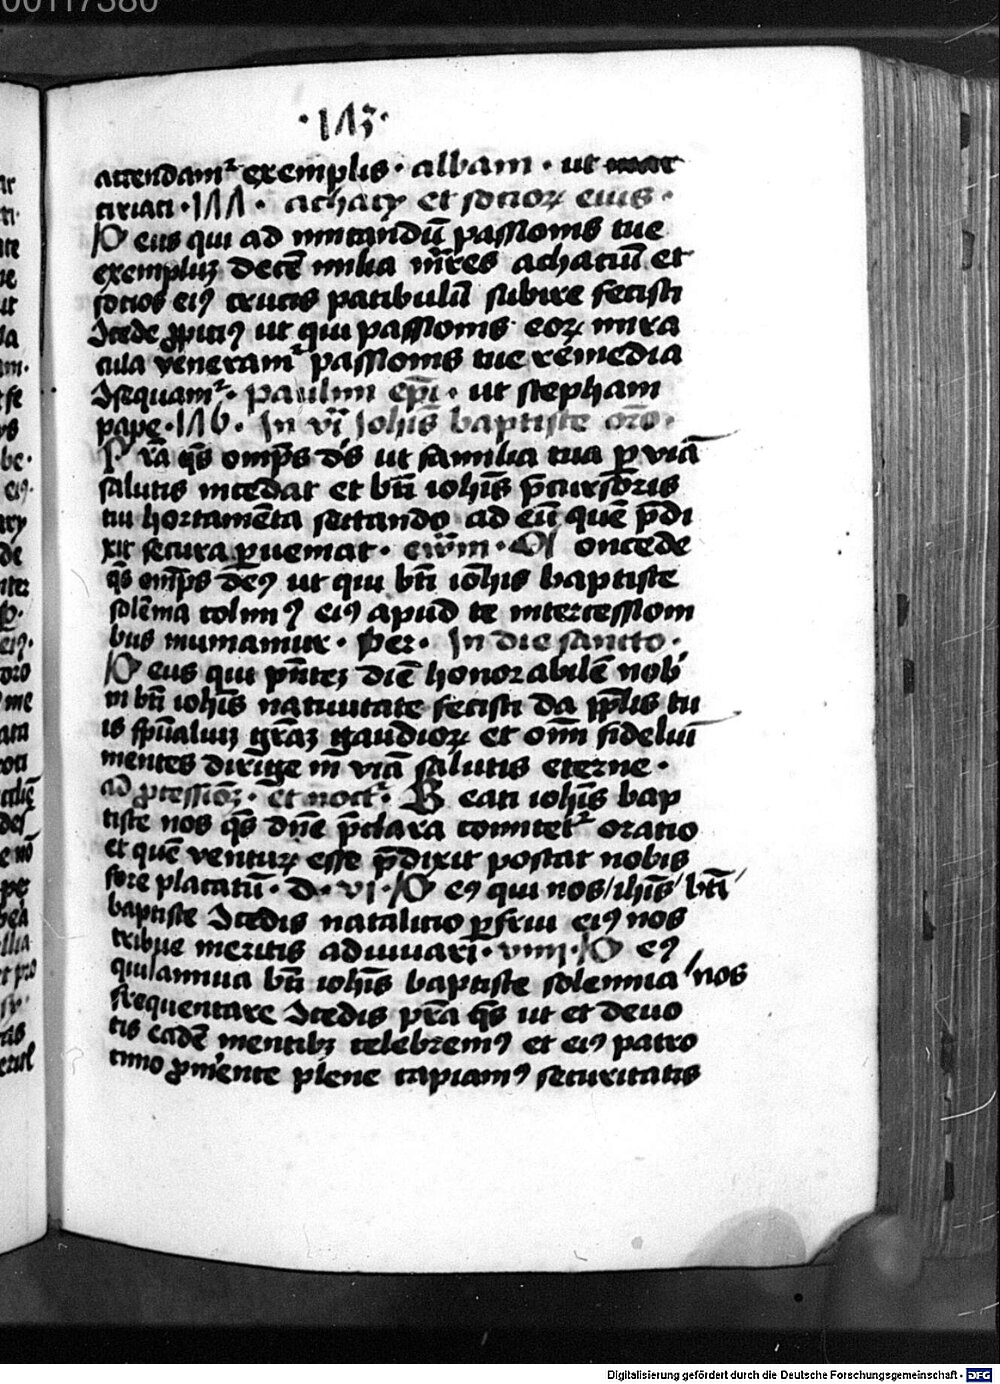 ·143·
attendamꝰ exemplis · albani · ut mar
tiriati · 144 · achacÿ et socioꝝ eius ·
Deus qui ad imitandū passionis tue
exempluꝫ decē milia mr̄es achaciū et
socios eiꝰ crucis patibulū subire fecisti
ꝯcede ꝓpitiꝰ ut qui passionis eoꝝ mira
cula veneramꝰ passionis tue remedia
ꝯsequamꝰ · paulini ep̄i · ut stephani
pape · 146 · In vi Joh̄is baptiste oro ·
Pr̄a qs̄ omp̄s ds̄ ut familia tua ꝑ viā
salutis incedat et bt̄i ioh̄is p̄cursoris
tui hortamēta sectando ad eū quē p̄di
xit secura ꝑueniat · Concede
qs̄ omp̄s deꝰ ut qui bt̄i ioh̄is baptiste
solēnia colimꝰ eiꝰ apud te intercessioni
bus muniamur · Per · In die sancto ·
Deus qui pn̄teꝫ diē honorabilē nob̄
in bt̄i ioh̄is natiuitate fecisti da ppl̄is tu
is sp̄ualiuꝫ gr̄aꝫ gaudioꝝ et om̄ fideliū
mentes dirige in viā salutis eterne ·
ad ꝓcessioꝫ · et noct · Beati ioh̄is bap
tiste nos qs̄ dn̄e p̄clara comitetꝰ oratio
et quē venturꝝ esse p̄dixit poscat nobis
fore placatū · d · vi · Deꝰ qui nos ih̄is bt̄i
baptiste ꝯcedis natalicio ꝑfrui eiꝰ nos
tribue meritis adiuuari · viii · Deꝰ
qui annua bt̄i ioh̄is baptiste solennia nos
frequentare ꝯcedis pr̄a qs̄ ut et deuo
tis eadē mentibꝫ celebremꝰ et eiꝰ patro
cinio ꝓmerente plene capiamꝰ securitatis
Digitalisierung gefördert durch die Deutsche Forschungsgemeinschaft - DFG